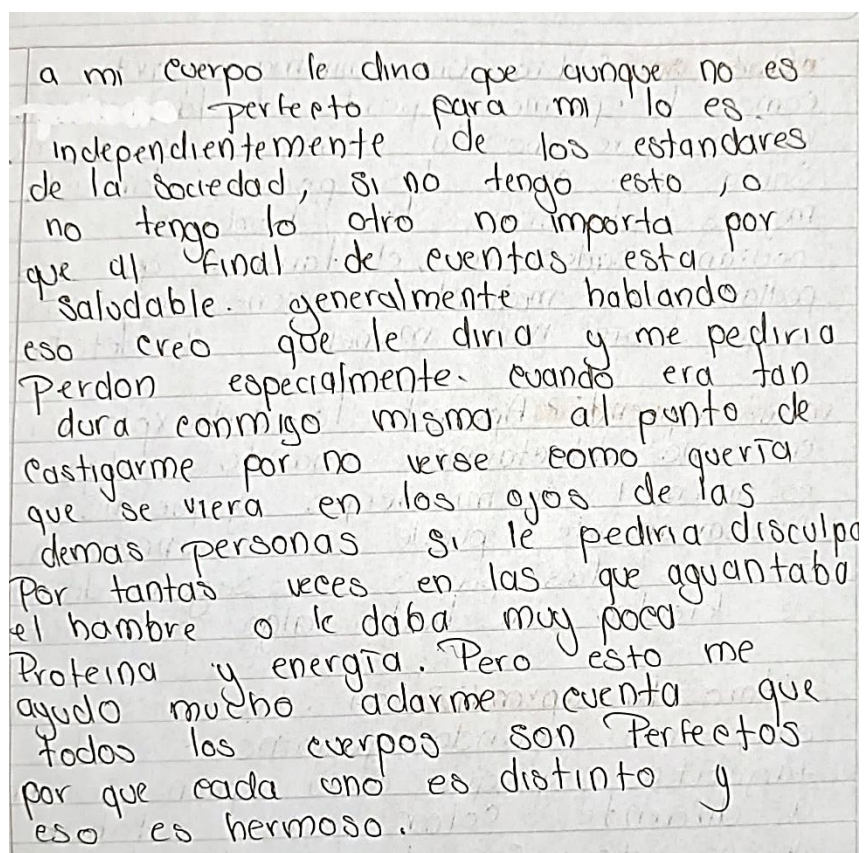 a mi cuerpo le diria que aunque no es
perfecto para mi, lo es.
independientemente de los estandares
de la sociedad, si no tengo esto, o
no tengo lo otro no importa por
que al final de cuentas esta
saludable. generalmente hablando
eso creo que le diria y me pediria
Perdon especialmente. cuando era tan
dura conmigo misma al punto de
castigarme por no verse como quería
que se viera en los ojos de las
demas personas si le pediria disculpa
Por tantas veces en las que aguantaba
el hambre o le daba muy poca
Proteina y energía. Pero esto me
ayudo mucho adarme cuenta que
todos los cuerpos son Perfectos
por que cada uno es distinto y
eso es hermoso.